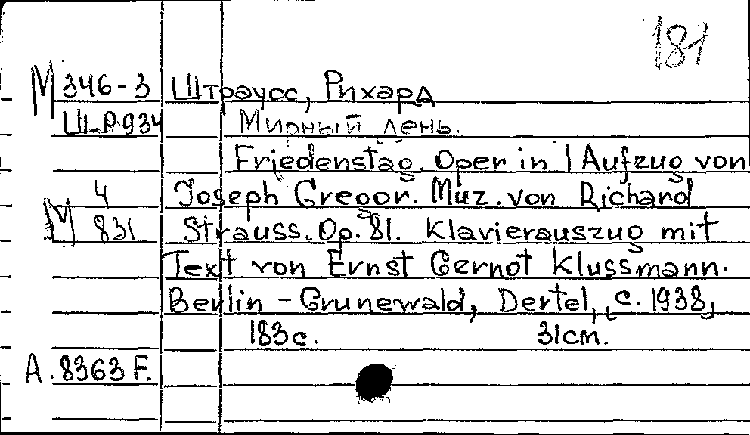 181
М 346-3 Штраусс, Рихард
Ш-Р934 Мирный день.
Friedenstag. Oper in 1 Aufzug von
4 Joseph Gregor. Muz. von Richard
М 831 Strauss. Op. 81. Klavierauszug mit
Text von Ernst Gernot Klussmann.
Berlin - Grunewald, Oertel, [c. 1938]
183 с. 31 см.
А. 8363 F.